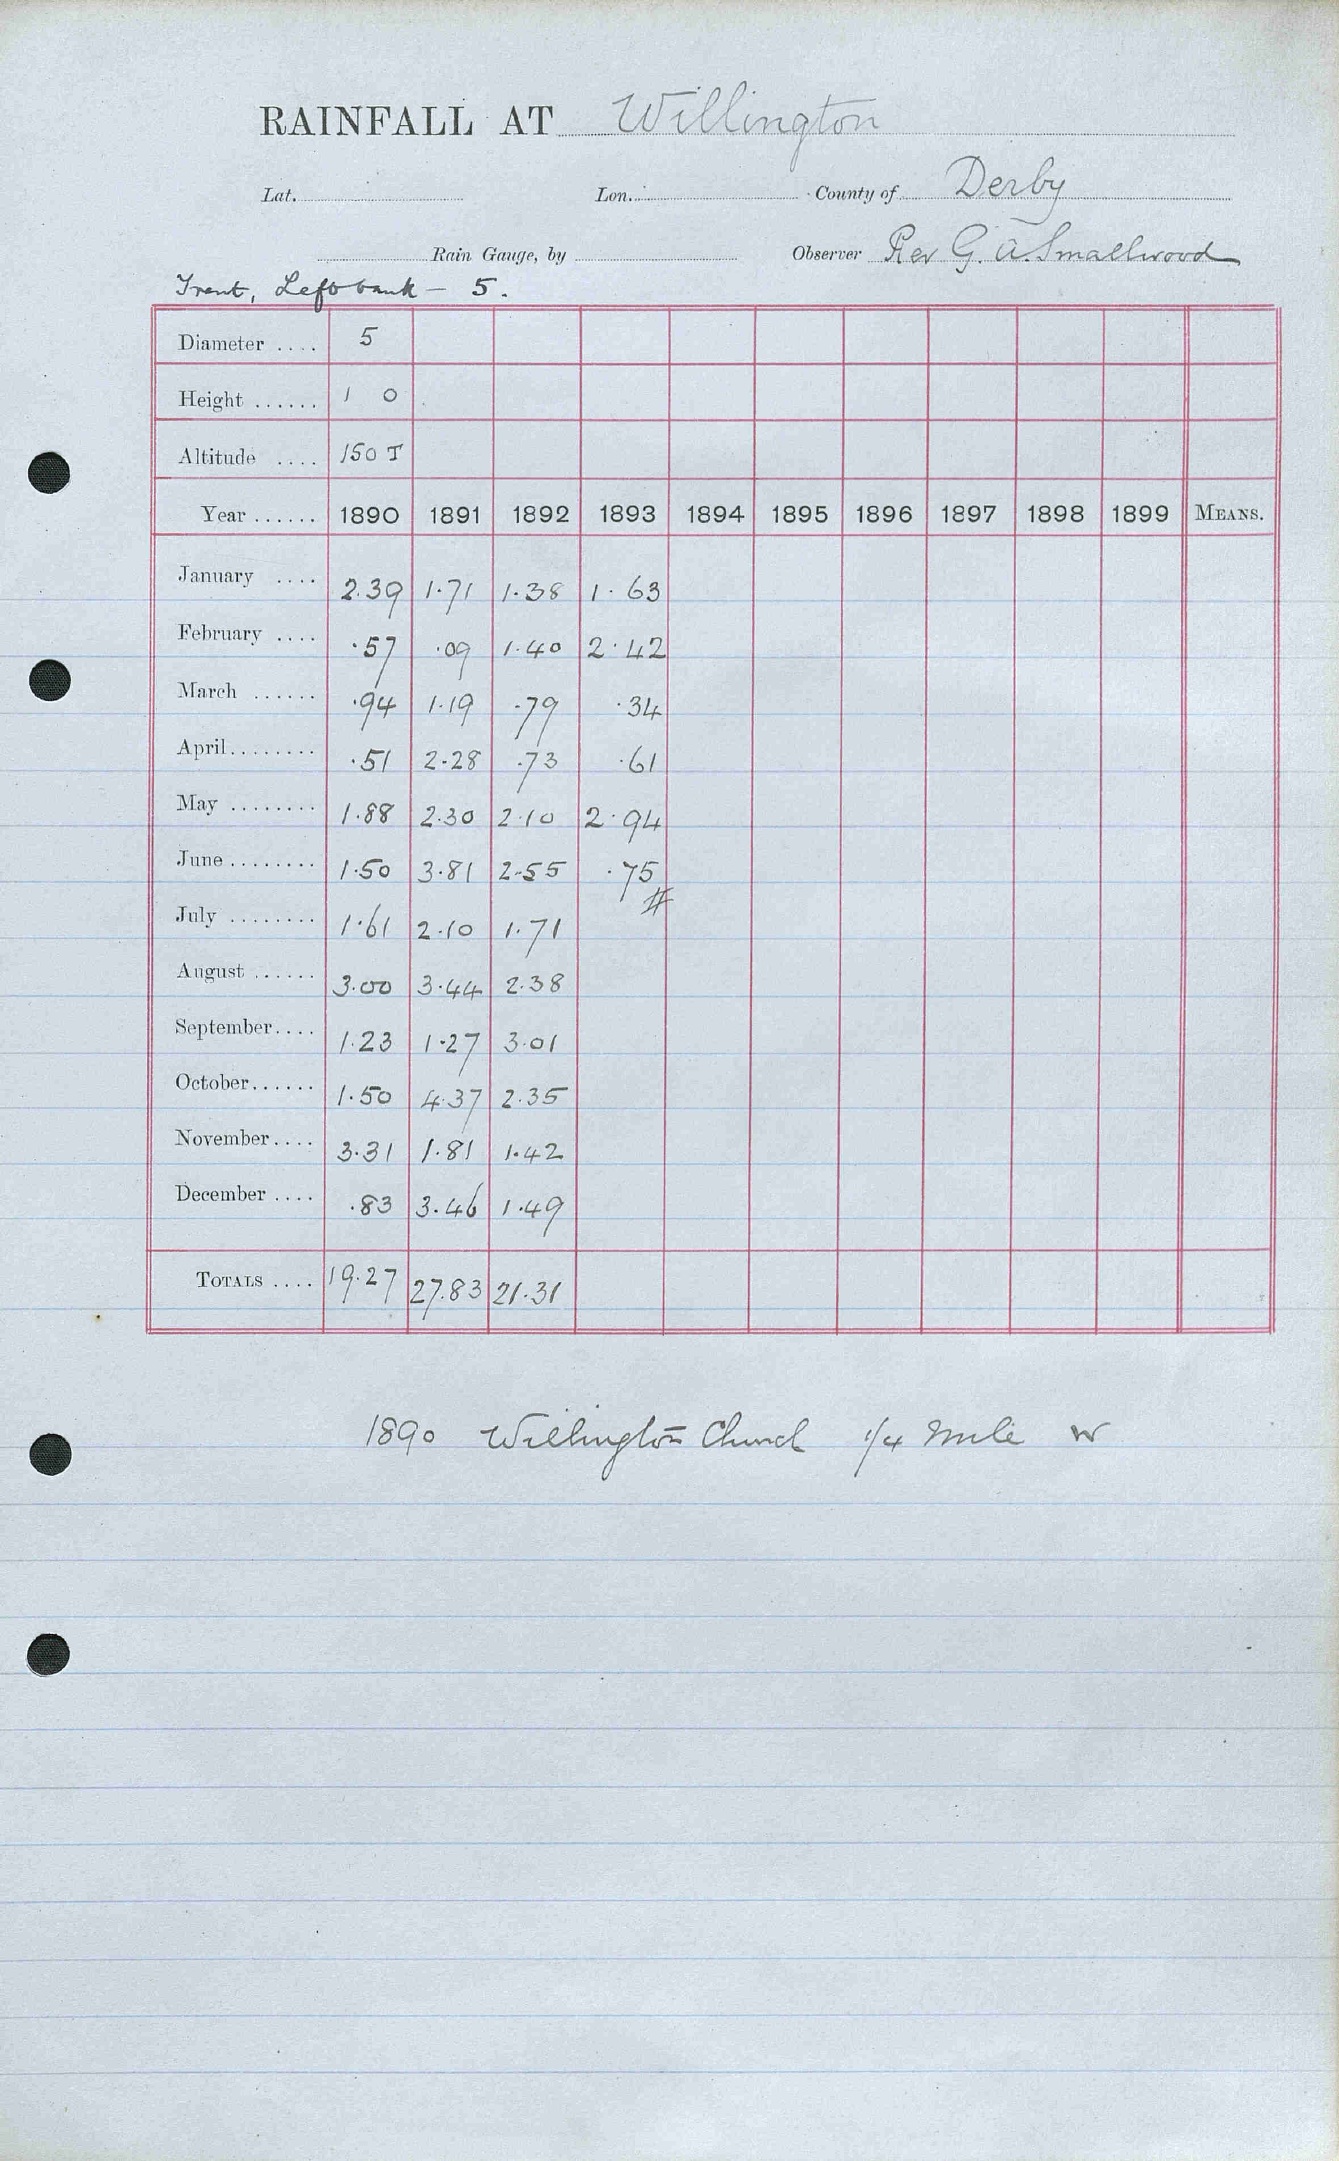 RAINFALL AT Willington
Lat. Lon. County of Derby
Rain Gauge, by Observer Rev G. A. Smallwood
Trent, Left bank - 5.
Diameter .... 5
Height ...... 1 0
Altitude .... 150 T
Year ...... 1890 1891 1892 1893 1894 1895 1896 1897 1898 1899 MEANS.
January .... 2.39 1.71 1.38 1.63
February .... .57 .09 1.40 2.42
March ...... .94 1.19 .79 .34
April ........ .51 2.28 .73 .61
May ........ 1.88 2.30 2.10 2.94
June ........ 1.50 3.81 2.55 .75
#
July ........ 1.61 2.10 1.71
August ...... 3.00 3.44 2.38
September.... 1.23 1.27 3.01
October...... 1.50 4.37 2.35
November.... 3.31 1.81 1.42
December .... .83 3.46 1.49
TOTALS .... 19.27 27.83 21.31
1890 Willington Church 1/4 Mile W